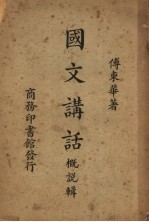 傅東華著
國文講話
概說輯
商務印書館發行